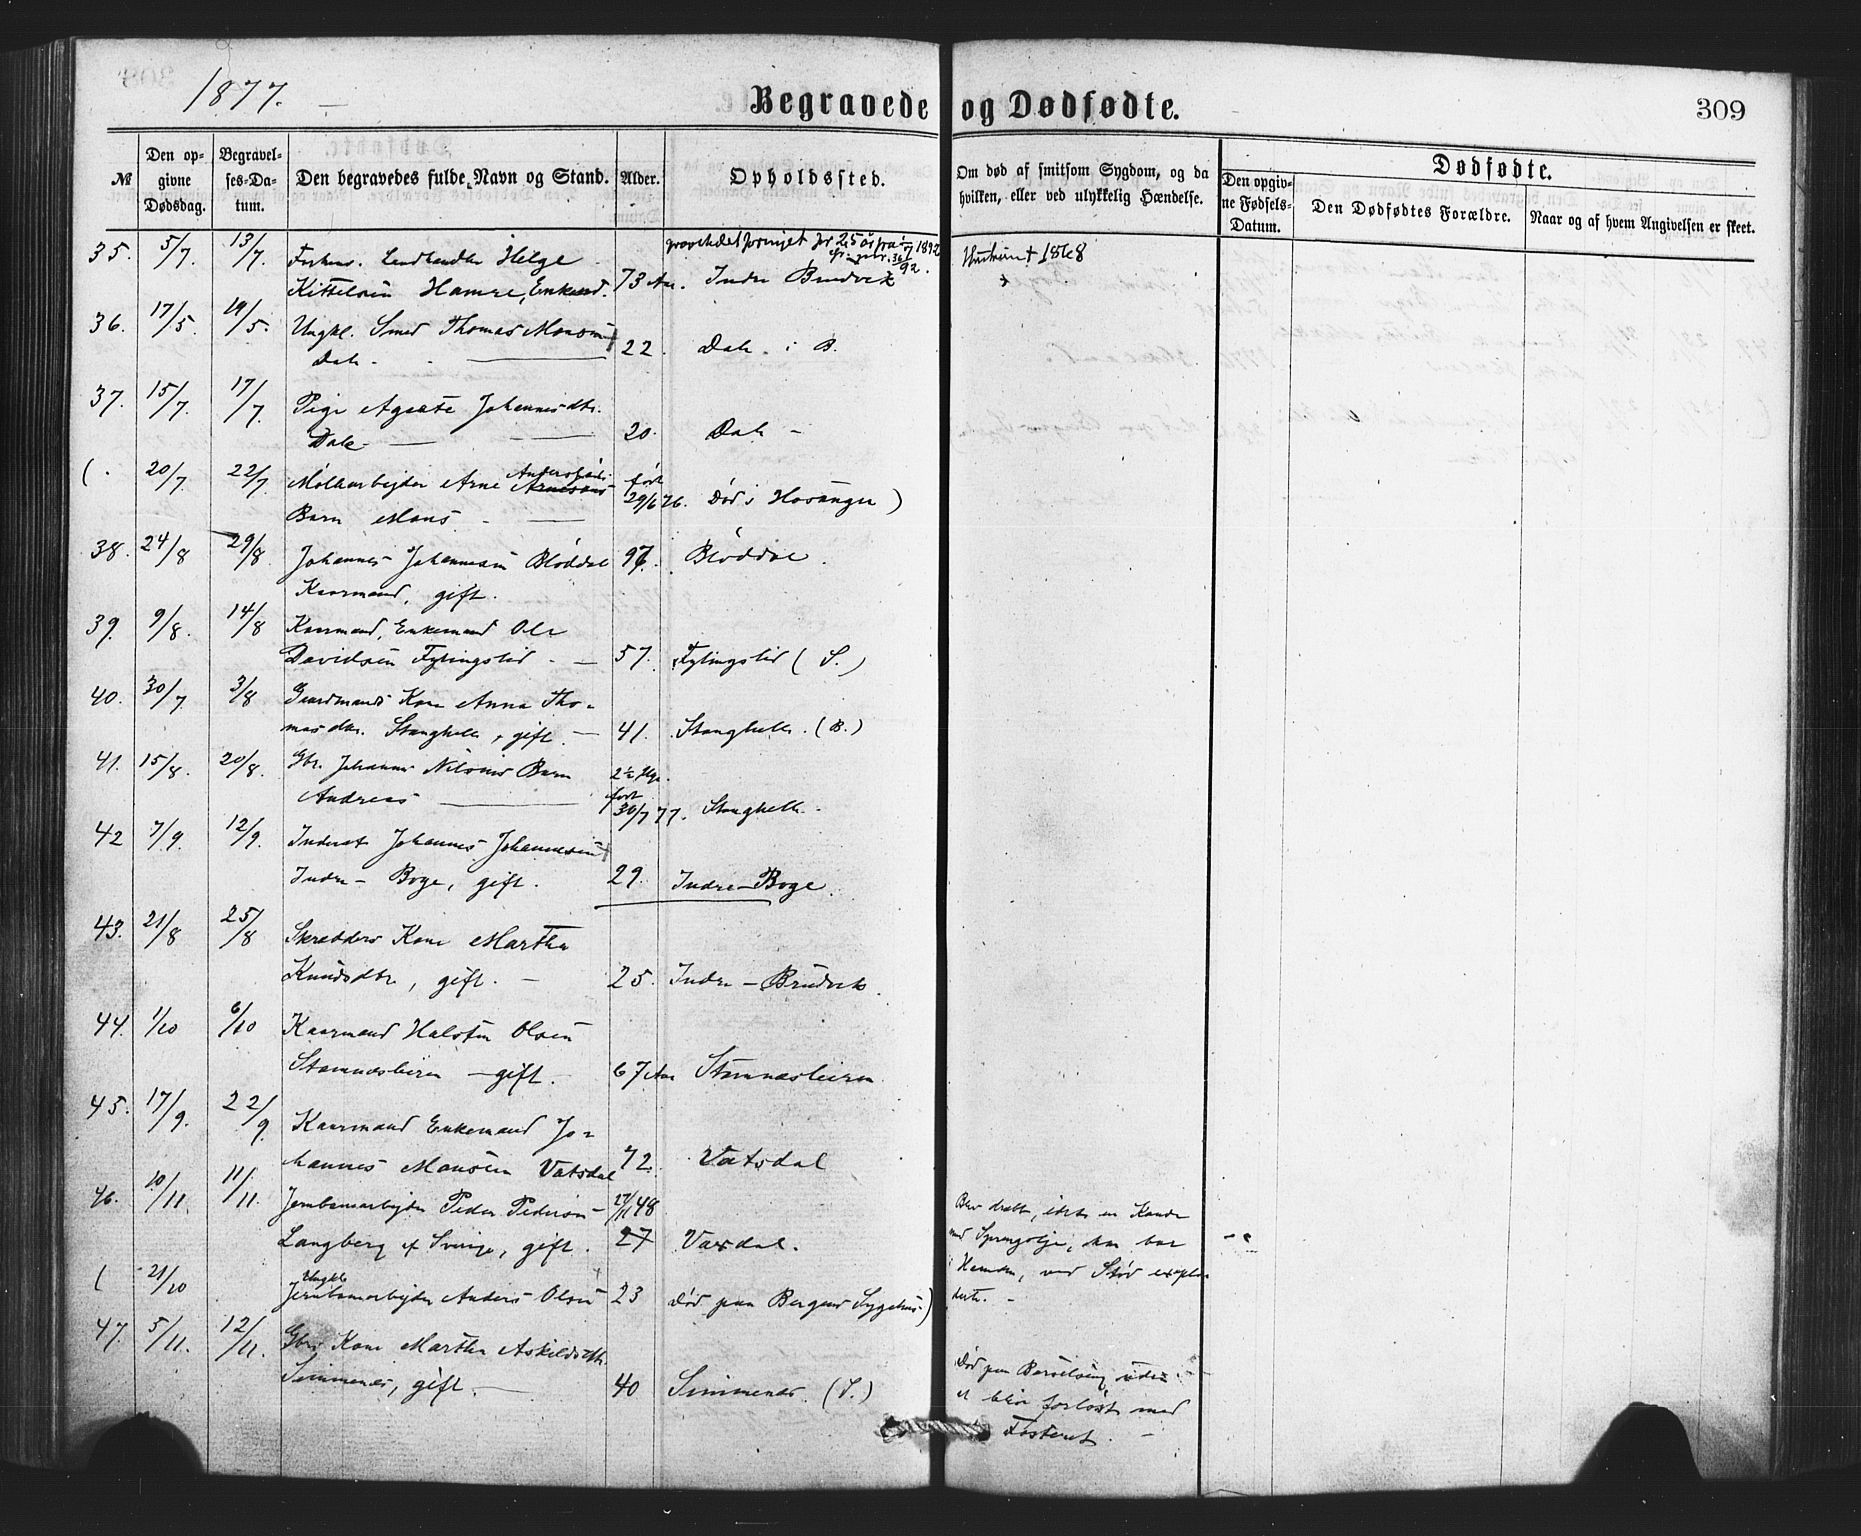 1877.
Begravede og Dødfødte.
309
№
Den opgivne Dødsdag.
Begravelses-Datum.
Den begravedes fulde Navn og Stand.
Alder.
Opholdssted.
Om død af smitsom Sygdom, og da hvilken, eller ved ulykkelig Hændelse.
Dødfødte.
Den opgivne Fødsels-Datum.
Den Dødfødtes Forældre.
Naar og af hvem Angivelsen er skeet.
35. 5/7. 13/7. Helge 1892
Kittelsen Hamre, Enkemd. 73 Aar. Indre Brudvik
Hustru † 1868
36. 17/5. 19/5. Ungkl. Smed Thomas Monsen
Dale - 22. Dale i B.
37. 15/7. 17/7. Pige Agate Johannesdtr.
Dale - 20. Dale -
( . 20/7. 22/7. Arbejder Arne Arnesens
Barn Mons - født 29/6 76. Død i Hosanger )
38. 24/8 29/8. Johannes Johannesen Bløddal
Kaarmand, gift. Bløddal.
39. 9/8. 14/8 Kaarmand, Enkemand Ole
Davidsen Fylingslid - 57. Fylingslid (S.)
40. 30/7 3/8 Gaardmands Kone Anna Tho-
masdtr. Stanghelle, gift. - 41. Stanghelle. (B.)
41. 15/8. 20/8. Gbr. Johannes Nilsens Barn
Andreas 2½ Uge. født 30/7 77. Stanghelle.
42 7/9. 12/9. Inderst Johannes Johannesen
Indre - Boge, gift. 29. Indre - Boge.
43. 21/8 25/8 Skredders Kone Martha
Knudsdtr, gift. - 25. Indre - Brudvik.
44. 1/10 6/10 Kaarmand Halsten Olsen
Stamnæsleiren - gift. 67 Aar Stamnæsleiren
45. 17/9. 22/9. Kaarmand Enkemand Jo-
hannes Monsen Vatsdal 72. Vatsdal
46. 10/11. 11/11. Jernbanearbejder Peder Pedersen
Langberg af Sverige, gift. 27/11 48 27 Vaxdal.
Blev dræbt, idet en Kande
med Sprengolje, han bar
i Haanden, ved Stød explo-
derte. -
( 21/10 Ungkl.
Jernbanearbejder Anders Olsen 23 død paa Bergens Sygehus )
47. 5/11. 12/11. Gbrs Kone Martha Askildsdtr.
Simmenes, gift. - 40 Simmenes (S.)
Død paa Barselseng uden
at blive forløst med
Fosteret. -